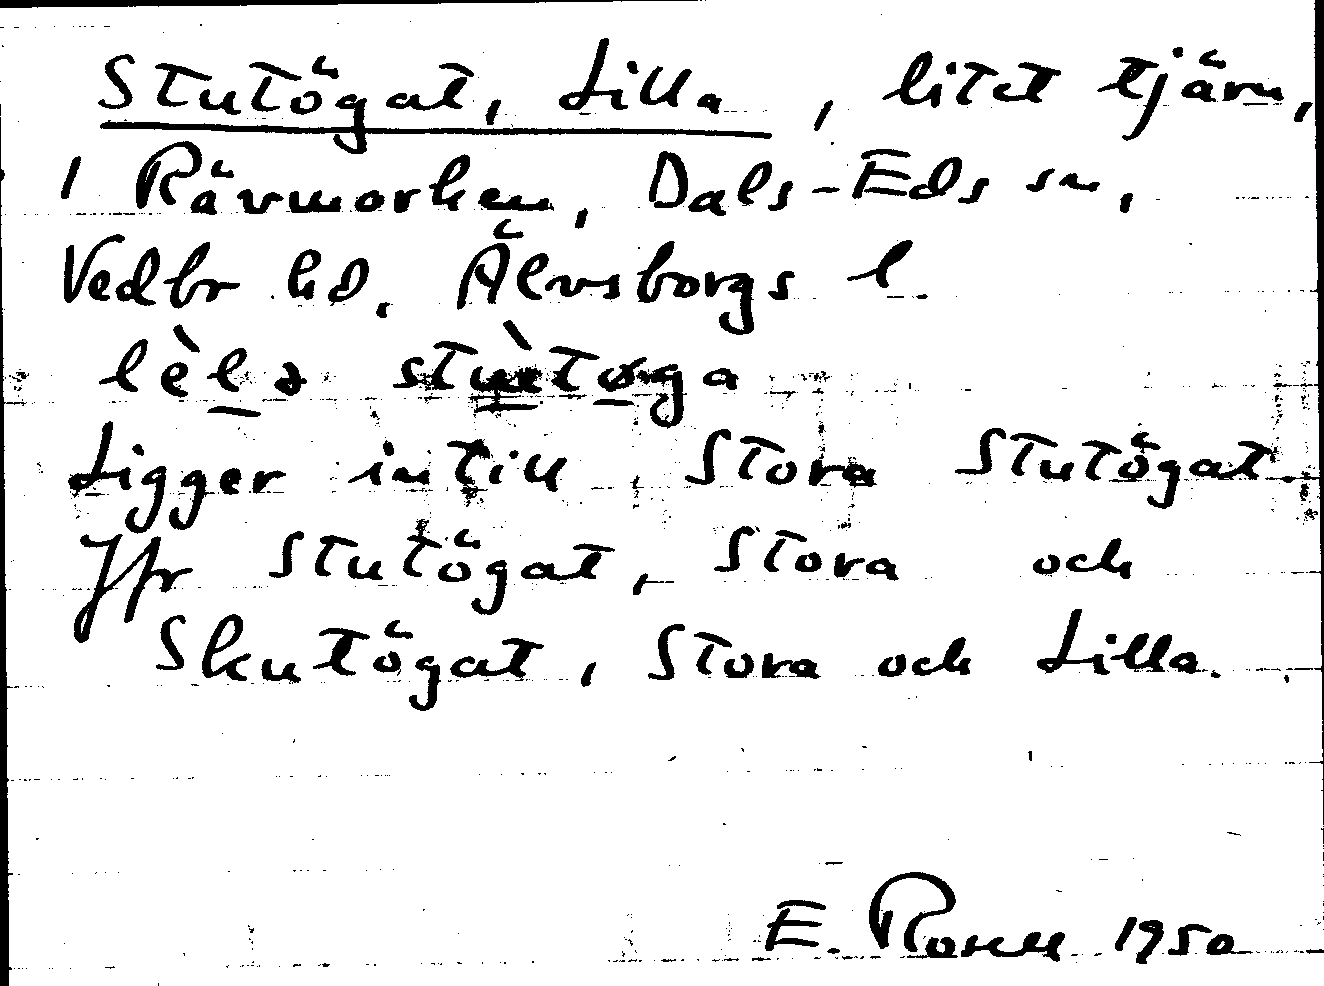 Stutögat, Lilla, litet tjärn,
i Rävmorken, Dals-Eds sn,
Vedbr hd. Älvsborgs l
lèlə stùtøga
Ligger intill Stora Stutögat.
Jfr Stutögat, Stora och
Skutögat, Stora och Lilla.
E. Rosell 1950